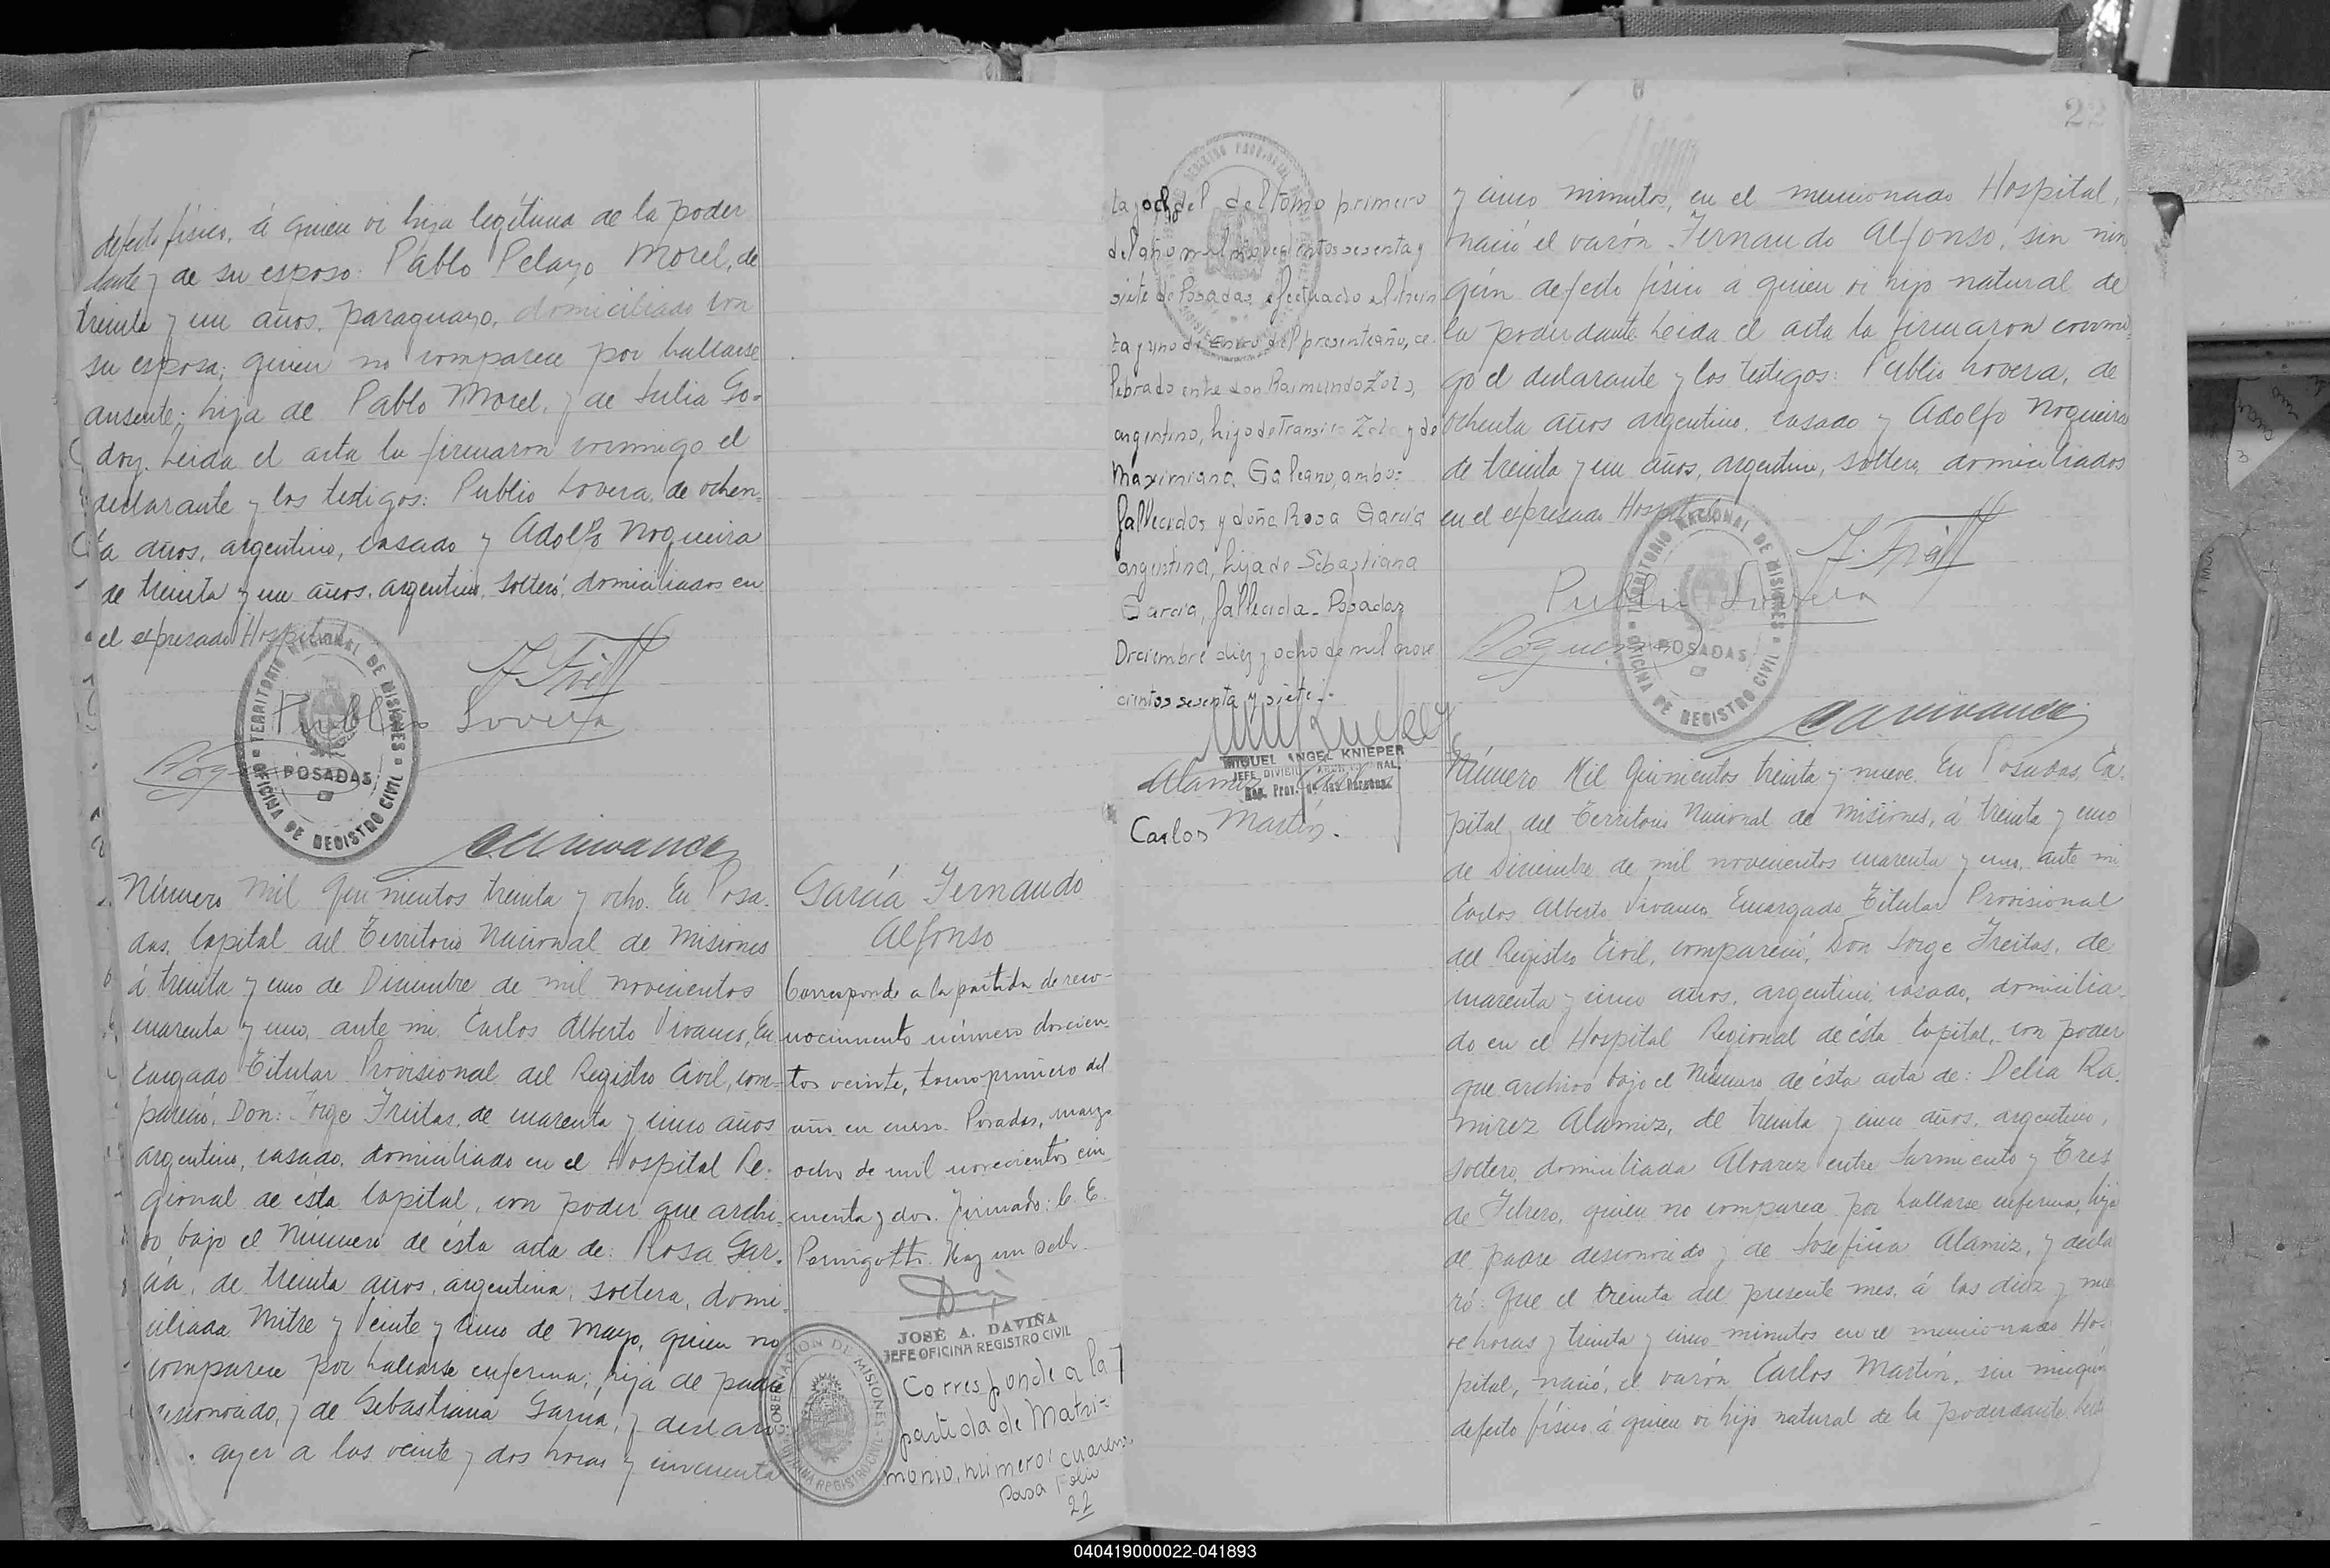 defecto físico, á quien oi hija legítima de la poder
dante y de su esposo: Pablo Pelayo Morel, de
treinta y un años, paraguayo, domiciliado con
su esposa; quien no comparece por hallarse
ausente; hija de Pablo Morel, y de Julia Go-
doy. Leida el acta la firmaron conmigo el
declarante y los testigos: Publio Lovera, de ochen-
ta años, argentino, casado y Adolfo Noqueira
de treinta y un años, argentino, soltero, domiciliados en
el expresado Hospital
TERRITORIO NACIONAL DE MISIONES
POSADAS
OFICINA DE REGISTRO CIVIL
Publio Lovera
Número Mil quinientos treinta y ocho. En Posa-
das, Capital del Territorio Nacional de Misiones
á treinta y uno de Diciembre de mil novecientos
cuarenta y uno, ante mi, Carlos Alberto Vivanco, En
cargado Titular Provisional del Registro Civil, com-
pareció, Don: Jorge Freitas, de cuarenta y cinco años
argentino, casado, domiciliado en el Hospital Re-
gional de ésta Capital, con poder que archi-
vo bajo el Número de ésta acta de: Rosa Gar-
cia, de treinta años, argentina, soltera, domi-
ciliada Mitre y Veinte y cinco de Mayo, quien no
comparece por hallarse enferma; hija de padre
desconocido, y de Sebastiana Garcia, y declaró
ayer a las veinte y dos horas y cincuenta
García Fernando
Alfonso
Corresponde a la partida de reco-
nocimiento número doscien-
tos veinte, tomo primero del
año en curso. Posadas, marzo
ocho de mil novecientos cin
cuenta y dos. Firmado: C. E.
Perugotti. Hay un sello.
JOSÉ A. DAVIÑA
JEFE OFICINA REGISTRO CIVIL
GOBERNACION DE MISIONES
OFICINA REGISTRO CIVIL
Corresponde a la
partida de Matri-
monio, número: cuaren
Pasa Folio
22
ta y ocho del del tomo primero
del año mil novecientos sesenta y
siete de Posadas, efectuado el trein
ta y uno de Enero del presente año, ce-
lebrado entre don Raimundo Zolo,
argentino, hijo de Transito Zolo y de
Maximiana Galeano, ambos
fallecidos y doña Rosa Garcia
argentina, hija de Sebastiana
Garcia, fallecida - Posadas
Diciembre diez y ocho de mil nove
cientos sesenta y siete.-
MIGUEL ANGEL KNIEPER
JEFE DIVISION ARCH. GENERAL
Reg. Prov. de las Personas
Alamiz
Carlos Martín.
22
y cinco minutos, en el mencionado Hospital,
nació el varón Fernando Alfonso, sin nin
gún defecto físico á quien oi hijo natural de
la poderdante. Leida el acta la firmaron conmi-
go el declarante y los testigos: Publio Lovera, de
ochenta años argentino, casado y Adolfo Noqueira
de treinta y un años, argentino, soltero, domiciliados
en el expresado Hospital
TERRITORIO NACIONAL DE MISIONES
POSADAS
OFICINA DE REGISTRO CIVIL
Publio Lovera
Número Mil Quinientos treinta y nueve. En Posadas, Ca-
pital del Territorio Nacional de Misiones, á treinta y uno
de Diciembre de mil novecientos cuarenta y uno, ante mi
Carlos Alberto Vivanco Encargado Titular Provisional
del Registro Civil, compareció, Don Jorge Freitas, de
cuarenta y cinco años, argentino, casado, domicilia-
do en el Hospital Regional de ésta Capital, con poder
que archivo bajo el Número de ésta acta de: Delia Ra-
mirez Alamiz, de treinta y cinco años, argentina,
soltera, domiciliada Alvarez entre Sarmiento y Tres
de Febrero, quien no comparece por hallarse enferma, hija
de padre desconocido y de Josefina Alamiz, y decla
ró: Que el treinta del presente mes, á las diez y nue
ve horas y treinta y cinco minutos en el mencionado Hos-
pital, nació, el varón Carlos Martín, sin ningún
defecto físico á quien oi hijo natural de la poderdante. Leida
040419000022-041893